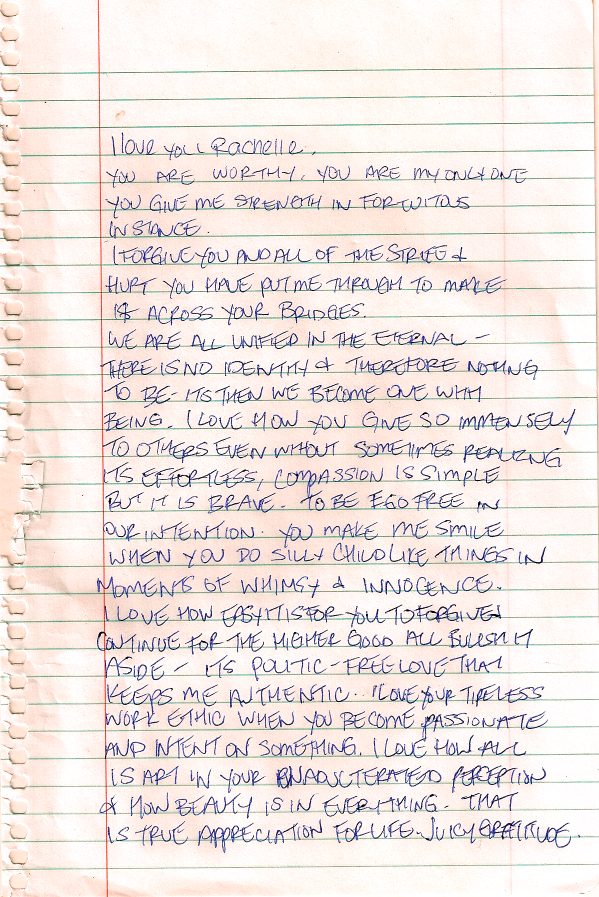 I love you Rachelle.
YOU ARE WORTHY. YOU ARE MY ONLY ONE
YOU GIVE ME STRENGTH IN FORTUITOUS
INSTANCE.
I FORGIVE YOU AND ALL OF THE STRIFE &
HURT YOU HAVE PUT ME THROUGH TO MAKE
IT ACROSS YOUR BRIDGES.
WE ARE ALL UNIFIED IN THE ETERNAL -
THERE IS NO IDENTITY & THEREFORE NOTHING
TO BE - ITS THEN WE BECOME ONE WITH
BEING. I LOVE HOW YOU GIVE SO IMMENSELY
TO OTHERS EVEN WITHOUT SOMETIMES REALIZING
ITS EFFORTLESS, COMPASSION IS SIMPLE
BUT IT IS BRAVE. TO BE EGO FREE IN
OUR INTENTION. YOU MAKE ME SMILE
WHEN YOU DO SILLY CHILD LIKE THINGS IN
MOMENTS OF WHIMSY & INNOCENCE.
I LOVE HOW EASY IT IS FOR YOU TO FORGIVE &
CONTINUE FOR THE HIGHER GOOD ALL BULLSHIT
ASIDE - ITS POLITIC-FREE LOVE THAT
KEEPS ME AUTHENTIC.. I LOVE YOUR TIRELESS
WORK ETHIC WHEN YOU BECOME PASSIONATE
AND INTENT ON SOMETHING. I LOVE HOW ALL
IS ART IN YOUR UNADULTERATED PERCEPTION
& HOW BEAUTY IS IN EVERYTHING. THAT
IS TRUE APPRECIATION FOR LIFE. JUICY GRATITUDE.